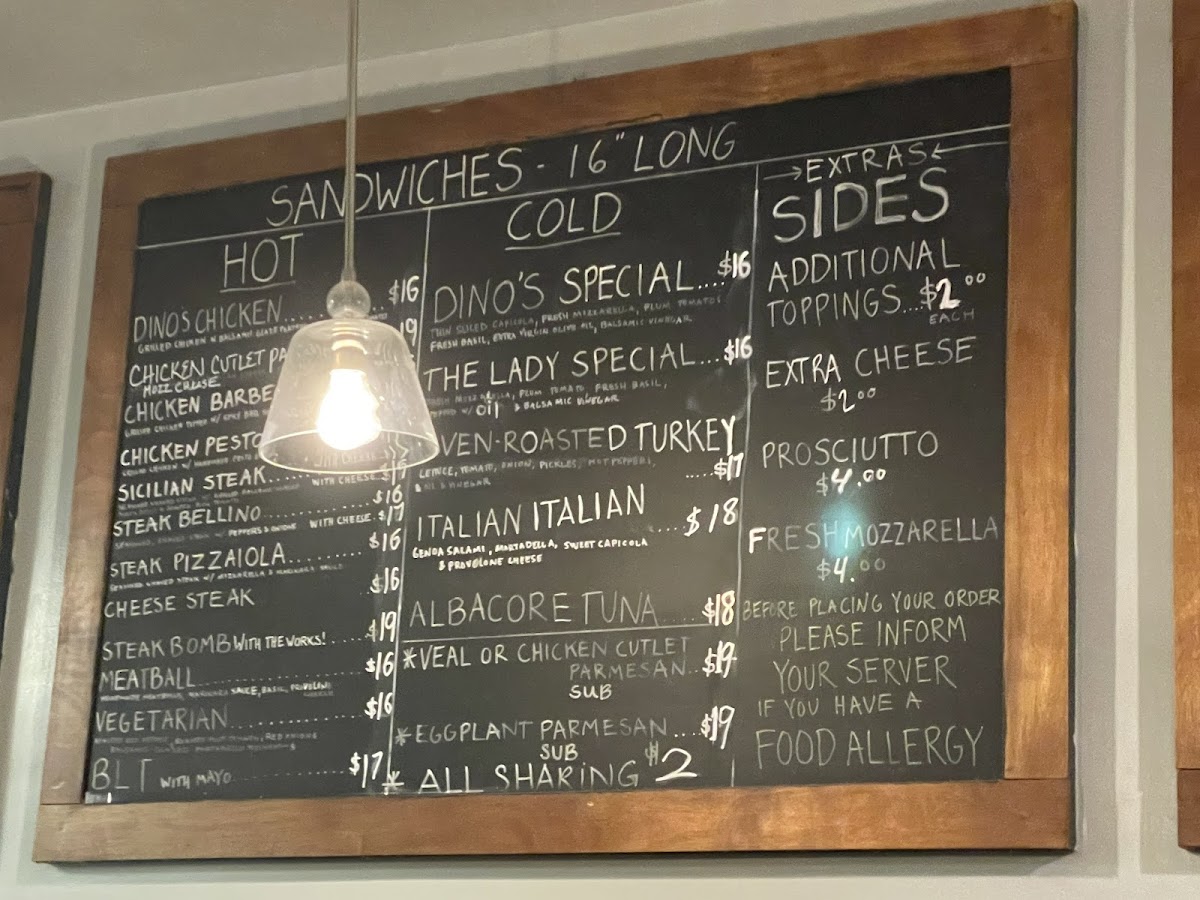 SANDWICHES - 16" LONG
HOT
DINO'S CHICKEN..... $16
GRILLED CHICKEN W BALSAMIC GLAZE
CHICKEN CUTLET PA
MOZZ CHEESE
CHICKEN BARBE
CHICKEN PESTO
SICILIAN STEAK..
WITH CHEESE
STEAK BELLINO........ $16
PEPPERS & ONIONS WITH CHEESE.. $17
STEAK PIZZAIOLA....... $16
CHEESE STEAK $16
STEAK BOMB WITH THE WORKS!.... $19
MEATBALL............ $16
SAUCE, BASIL, PROVOLONE
VEGETARIAN............ $16
BLT WITH MAYO............ $17
COLD
DINO'S SPECIAL.... $16
THIN SLICED CAPICOLA, FRESH MOZZARELLA, PLUM TOMATOES
FRESH BASIL, EXTRA VIRGIN OLIVE OIL, BALSAMIC VINEGAR
THE LADY SPECIAL... $16
FRESH MOZZARELLA, PLUM TOMATO FRESH BASIL,
W/ OIL & BALSAMIC VINEGAR
VEN-ROASTED TURKEY
LETTUCE, TOMATO, ONION, PICKLES, HOT PEPPERS,
..... $17
OIL & VINEGAR
ITALIAN ITALIAN
..... $18
GENOA SALAMI, MORTADELLA, SWEET CAPICOLA
& PROVOLONE CHEESE
ALBACORE TUNA.... $18
*VEAL OR CHICKEN CUTLET
PARMESAN.. $19
SUB
*EGGPLANT PARMESAN... $19
SUB
* ALL SHARING $2
→EXTRAS←
SIDES
ADDITIONAL
TOPPINGS... $2.00
EACH
EXTRA CHEESE
$2.00
PROSCIUTTO
$4.00
FRESH MOZZARELLA
$4.00
BEFORE PLACING YOUR ORDER
PLEASE INFORM
YOUR SERVER
IF YOU HAVE A
FOOD ALLERGY